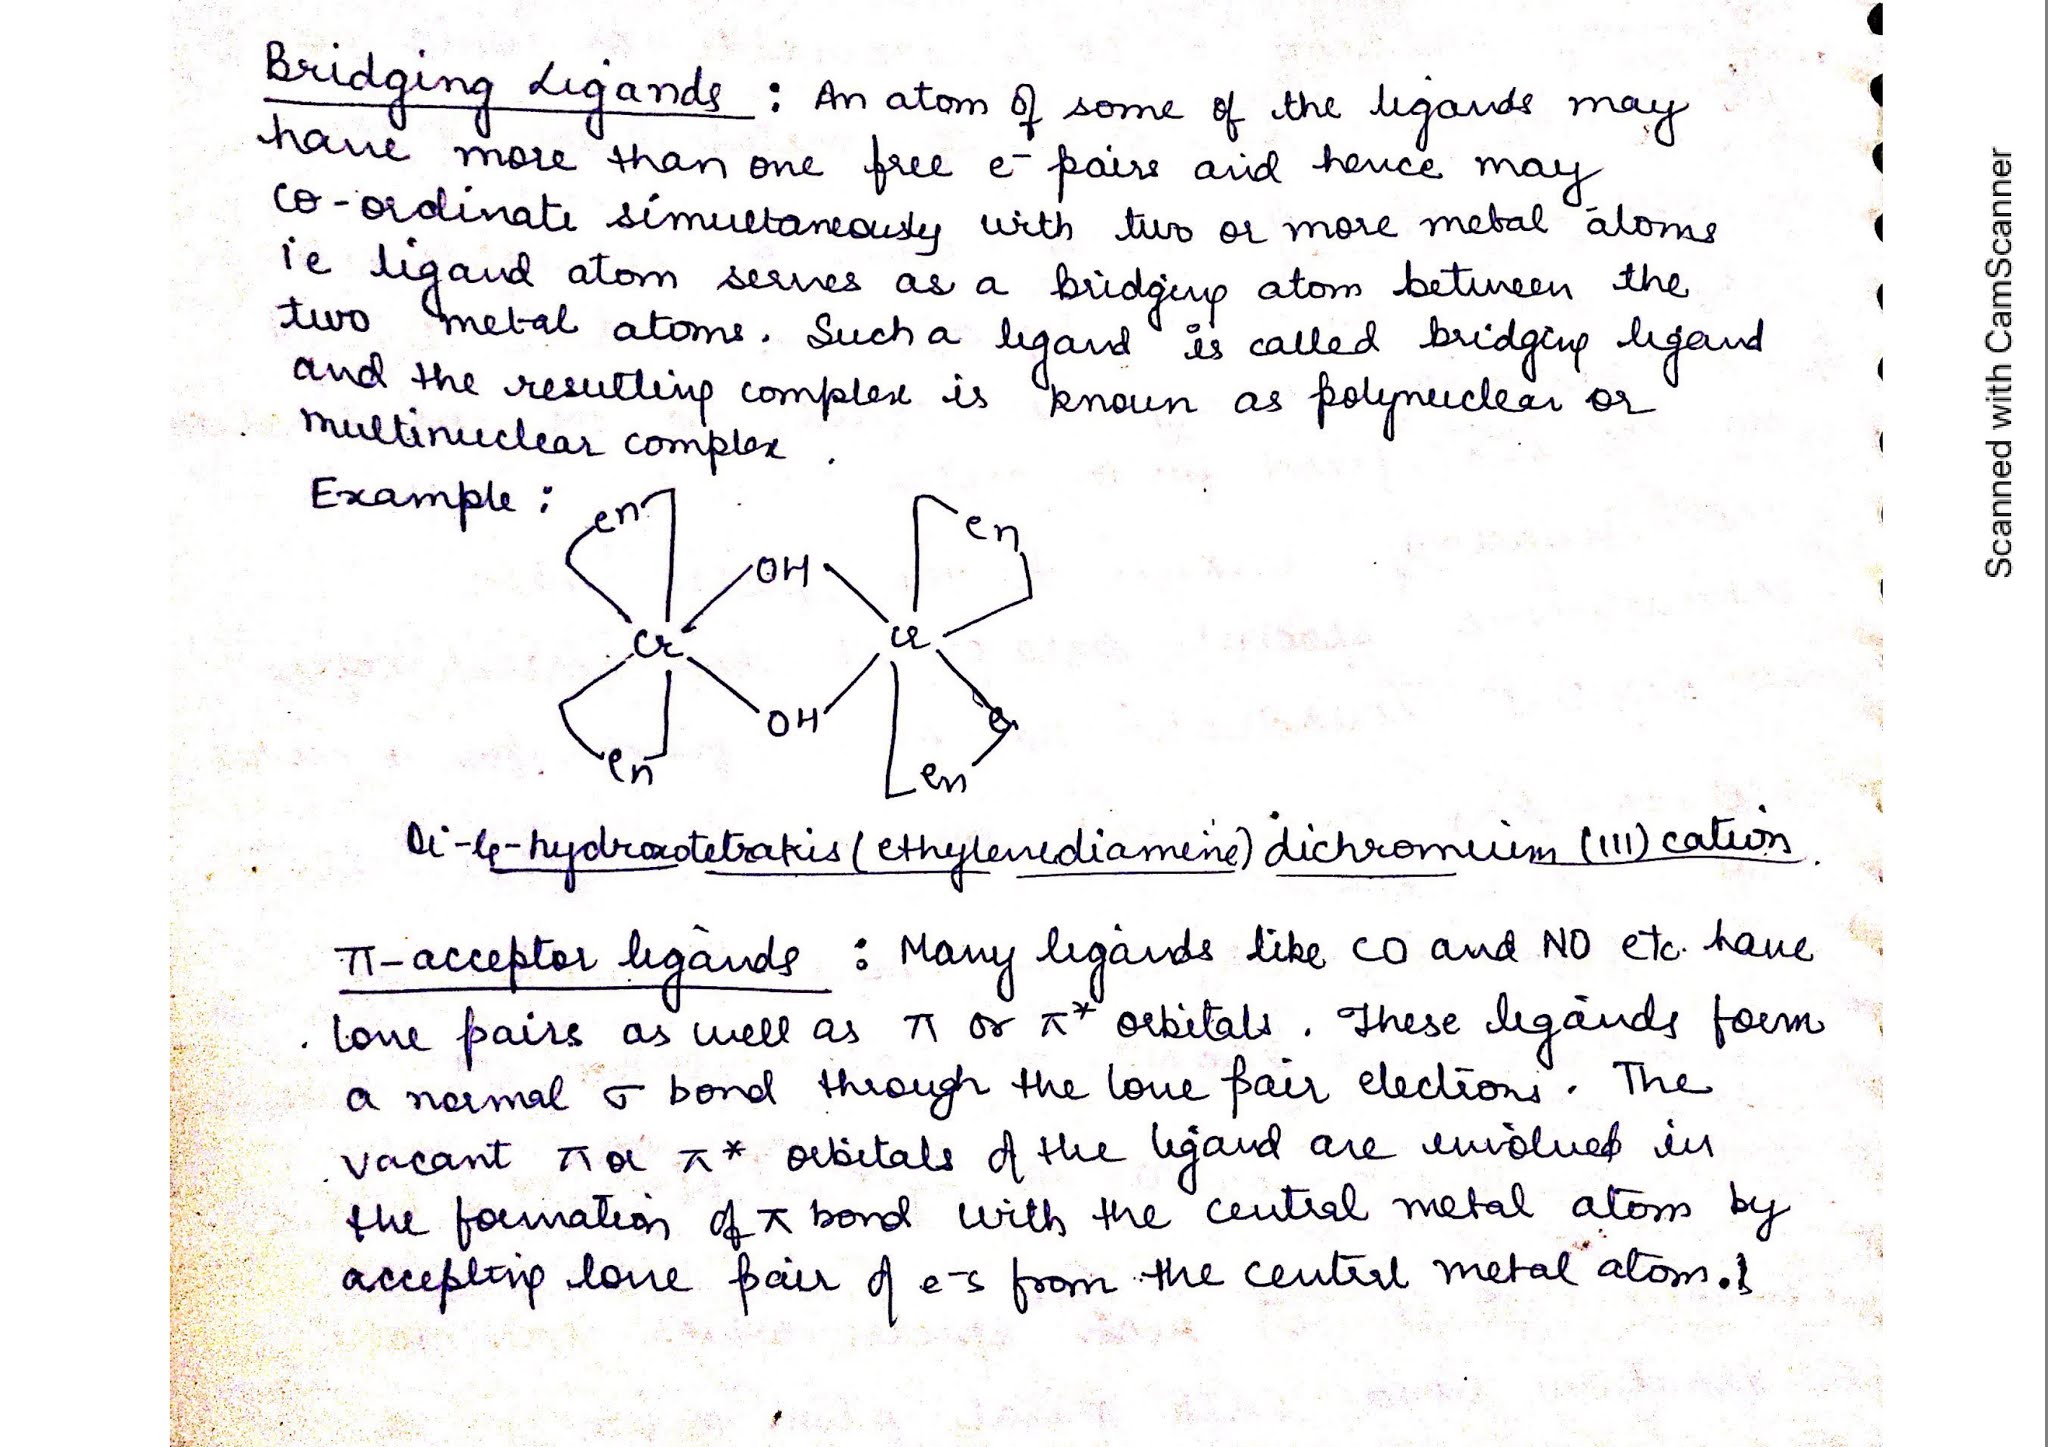 Bridging Ligands : An atom of some of the ligands may
have more than one free e⁻ pairs and hence may
co-ordinate simultaneously with two or more metal atoms
ie ligand atom serves as a bridging atom between the
two metal atoms. Such a ligand is called bridging ligand
and the resulting complex is known as polynuclear or
multinuclear complex .
Example :
en en
OH
Cr Cr
OH
en en
Di-μ-hydroxotetrakis (ethylenediamine) dichromium (III) cation .
π-acceptor ligands : Many ligands like CO and NO etc. have
lone pairs as well as π or π* orbitals . These ligands form
a normal σ bond through the lone pair electrons . The
vacant π or π* orbitals of the ligand are involved in
the formation of π bond with the central metal atom by
accepting lone pair of e⁻s from the central metal atom.
Scanned with CamScanner